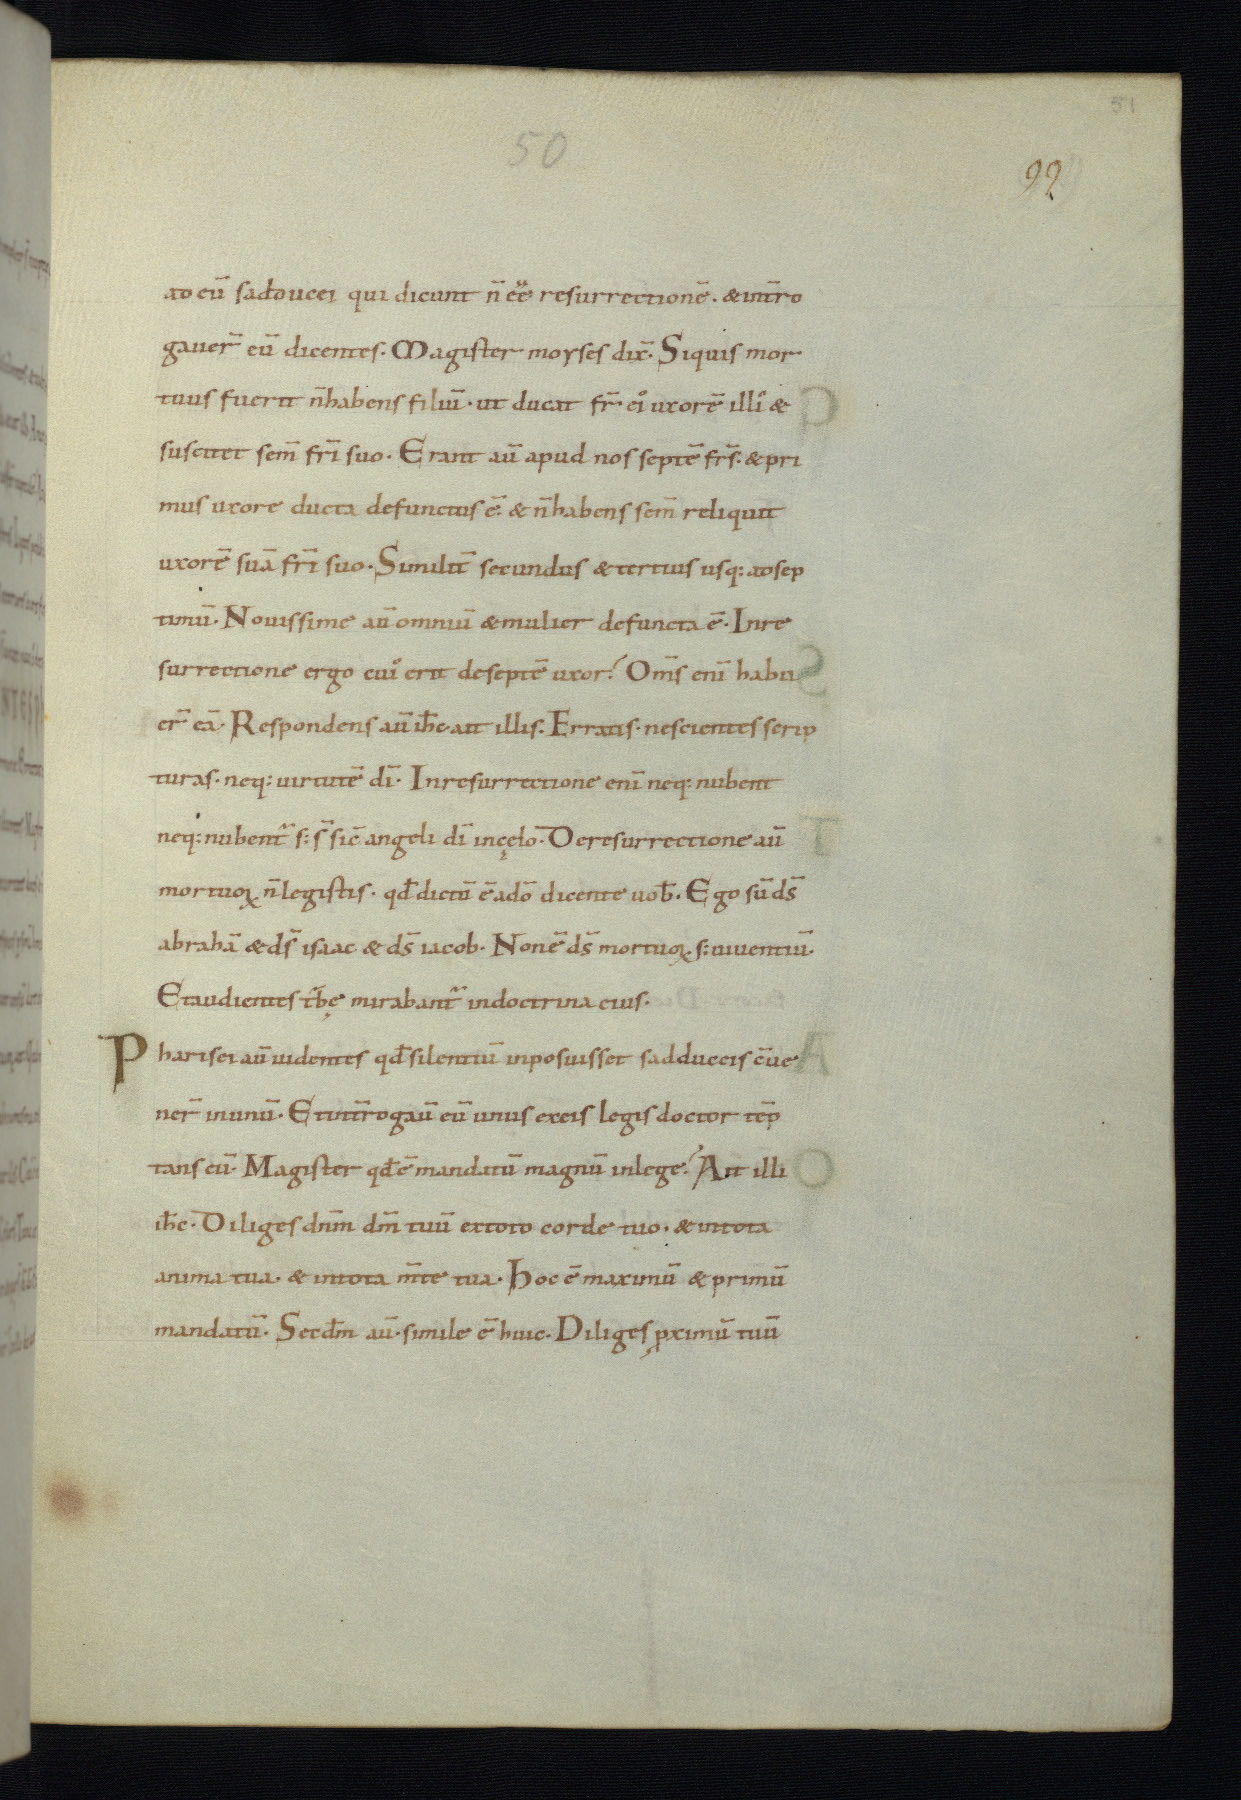 51
50
99
ad eū sadducei qui dicunt n̄ eē resurrectionē. & int̄ro
gauer̄ eū dicentes. Magister moyses dix̄. Siquis mor
tuus fuerit n̄habens filiū. ut ducat fr̄ eiꝰ uxorē illiꝰ &
suscitet sem̄ fr̄i suo. Erant aū apud nos septē fr̄s. & pri
mus uxore ducta defunctus ē. & n̄habens sem̄ reliquit
uxorē suā fr̄i suo. Similit̄ secundus & tertius usq: adsep
timū. Nouissime aū omniū & mulier defuncta ē. Inre
surrectione ergo cuiꝰ erit deseptē uxor? Om̄s eni̅ habu
er̄ eā. Respondens aū ih̄c ait illis. Erratis. nescientes scrip
turas. neq: uirtutē dī. Inresurrectione eni̅ neq: nubent
neq: nubent᷑ s: s̄t sic̄ angeli dī incęlo. Deresurrectione aū
mortuoꝝ n̄legistis. qđ dictū ē adō dicente uob̄. Ego sū d̄s
abrahā & d̄s isaac & d̄s iacob. Nonē d̄s mortuoꝝ s: uiuentiū.
Etaudientes t᷑bę mirabant᷑ indoctrina eius.
Pharisei aū uidentes qđ silentiū inposuisset sadduceis c̄ue
ner̄ inunū. Etint̄rogaū eū unus exeis legis doctor tēp
tans eū. Magister qđ ē mandatū magnū inlege? Ait illi
ih̄c. Diliges dn̄m dm̄ tuū extoto corde tuo. & intota
anima tua. & intota m̄te tua. Hoc ē maximū & primū
mandatū. Secd̄m aū. simile ē huic. Diliges ꝓximū tuū